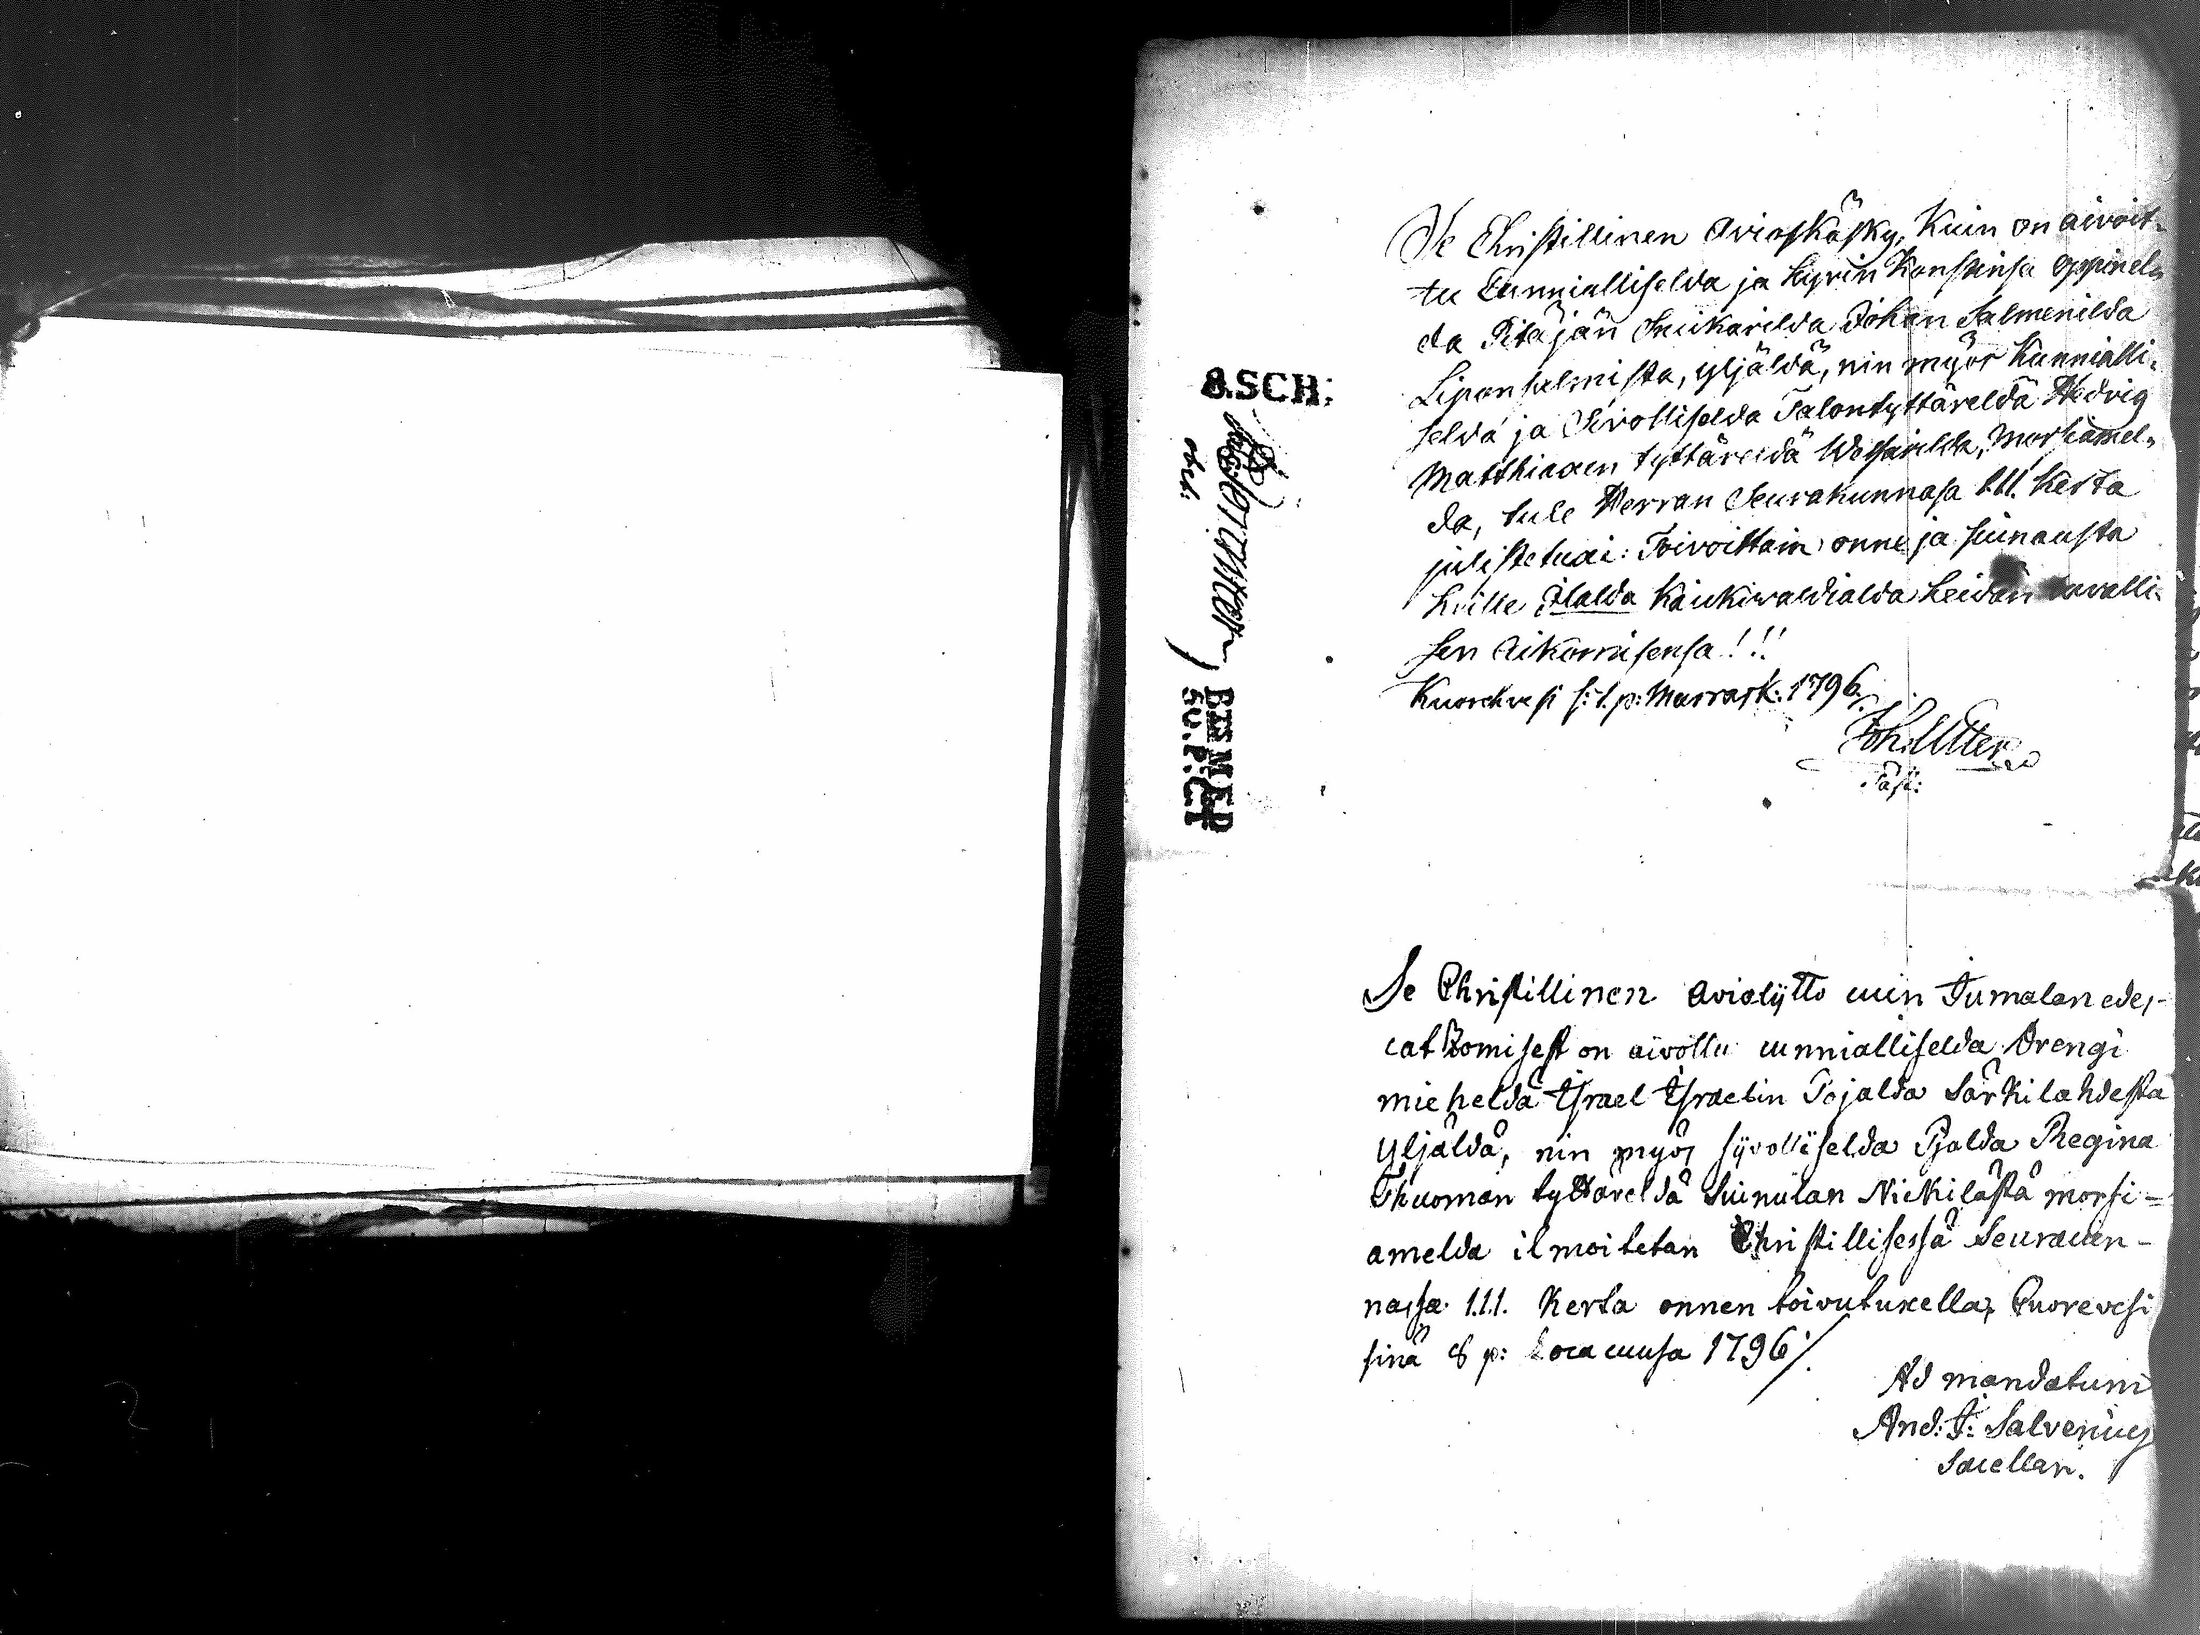 8.SCH:
BLSMER
SO.P:CT
Se Christillinen Avioskäsky, Kuin on aivoit-
tu Cunnialliselda ja hyvin Konstinsa oppinel-
da Pitäjän Snikarilda Johan Salmenilda
Liponsalmista, yljäldä, nin myös Kunnialli-
selda ja Sivolliselda Talontyttäreldä Hedvig
Matthiaxen tyttäreldä, Morsiamel-
da, tule Herran Seurakunnasa 1.1.1. Kerta
julistetuxi: Toivoittain onne ja siunausta
heille Jlalda Kaickivaldialda heidän
sen Aikomisensa!!!
Kuorehvesi s: 1. p: Marrask: 1796.
Joh. Utter
Past:
Se Christillinen aviolijtto cuin Jumalan edes-
catzomisest on aivottu cunnialliselda Drengi
mieheldä Israel Israelin Pojalda Särkilahdesta
Yljäldä, nin myös sijvolliselda Pjalda Regina
Thuoman tyttäreldä Suinulan Nickilästä morsi-
amelda ilmoitetan Christillisessä Seuracun-
nassa 1.1.1. Kerta onnen toivotuxella, Cuorevesi
sinä 8 p: Locacuusa 1796/.
Ad mandatum
And: J: Salvenius
Sacellan.